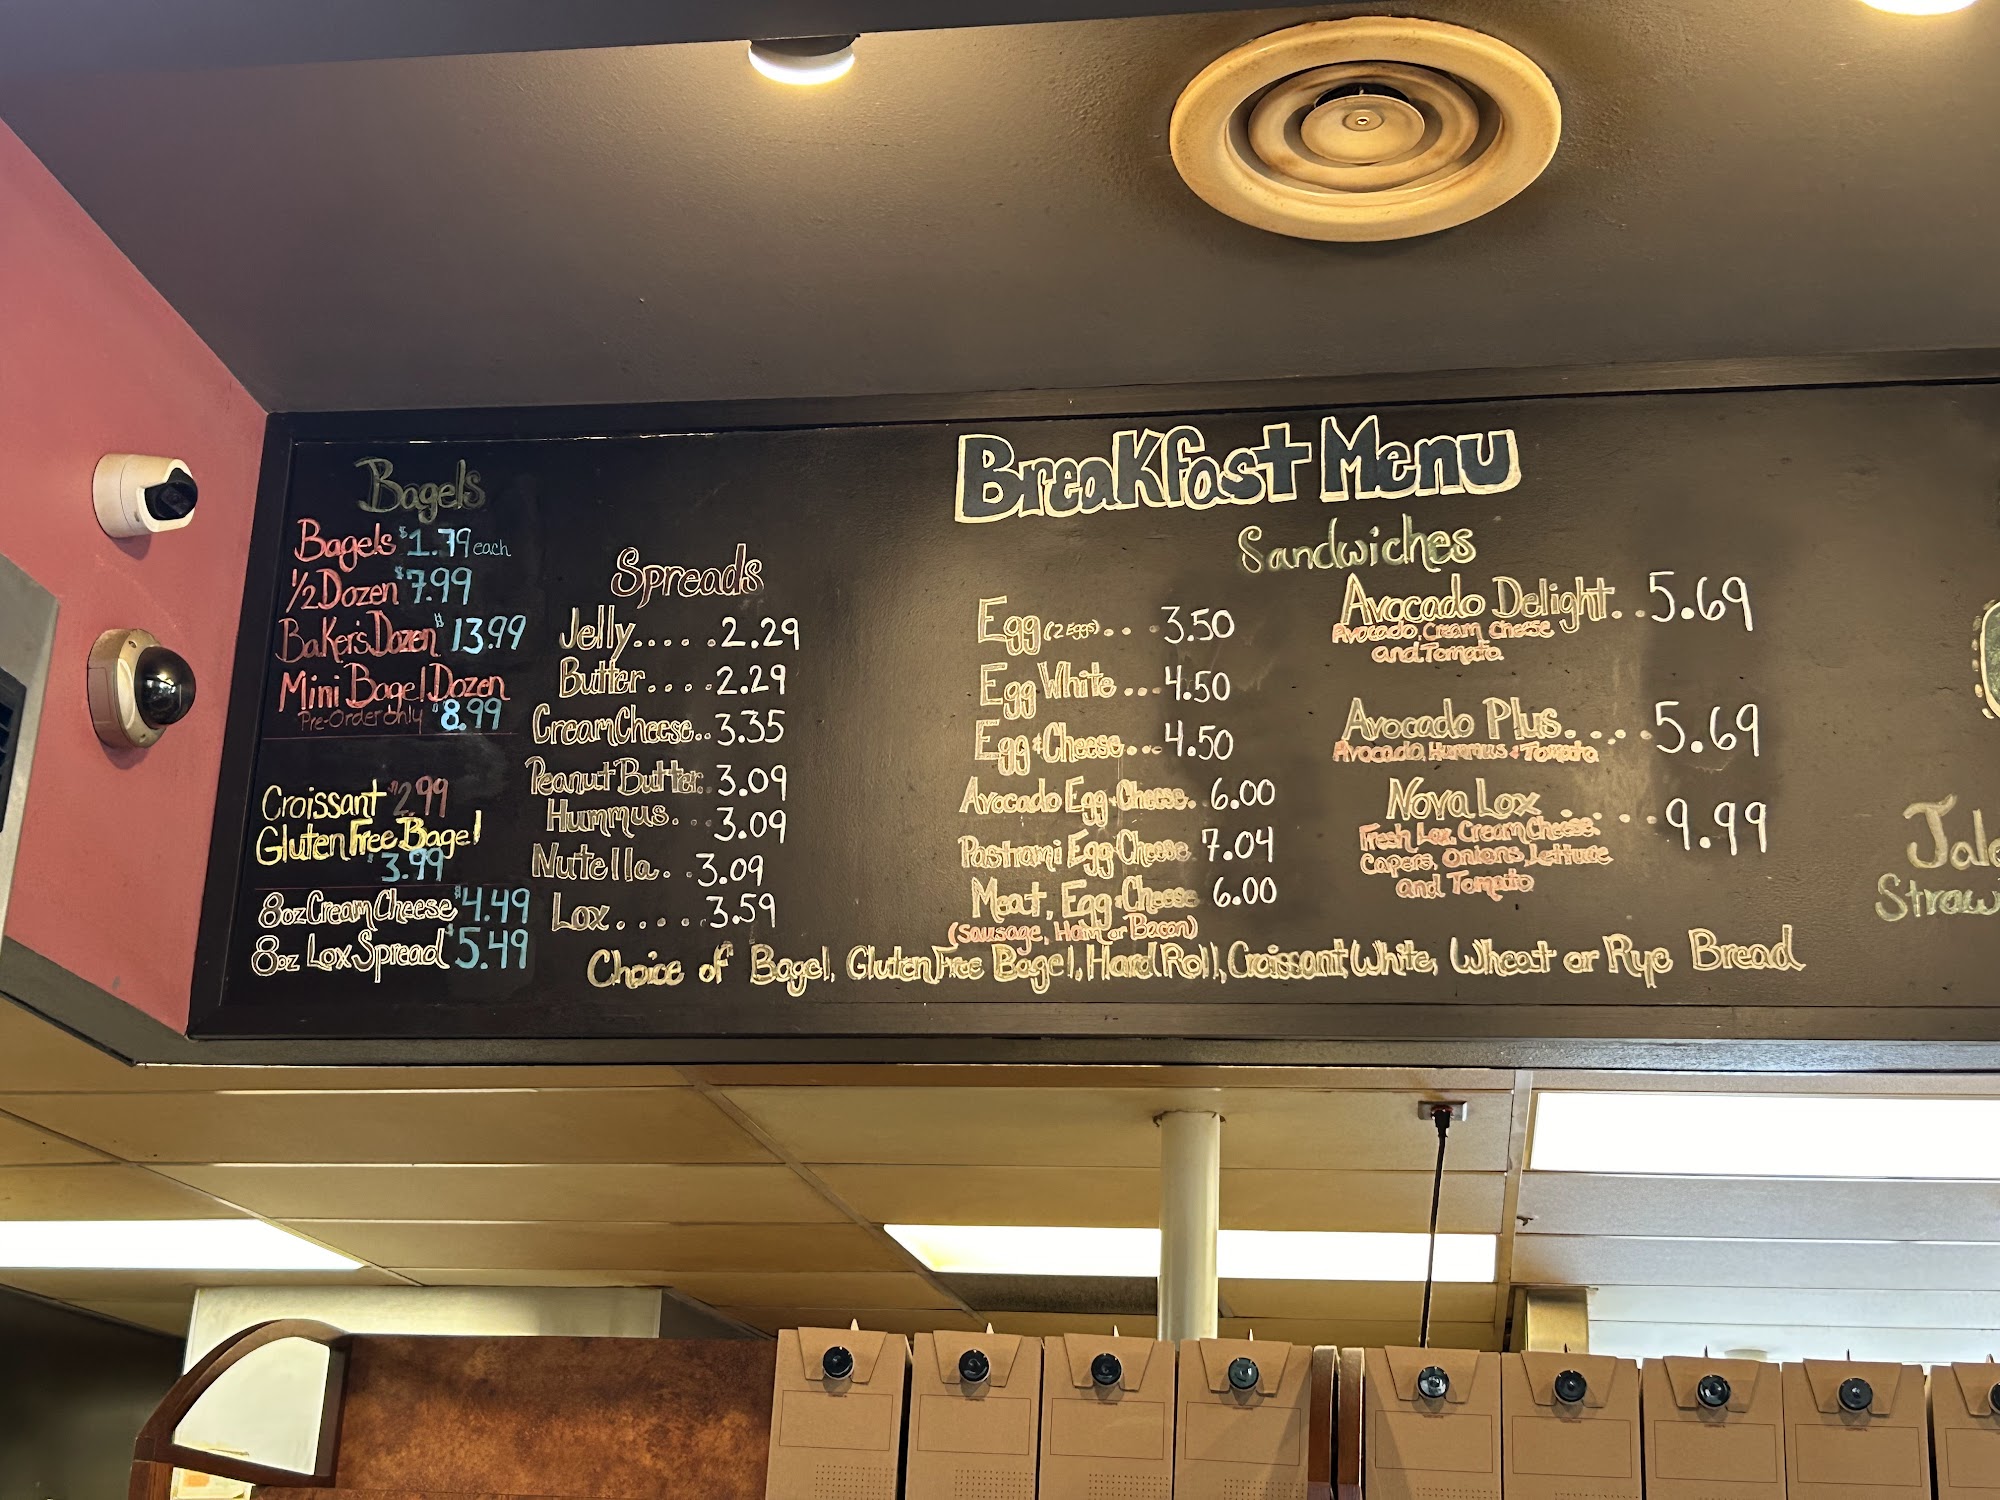 Bagels
Bagels $1.79 each
1/2 Dozen $7.99
Baker's Dozen $13.99
Mini Bagel Dozen
Pre-Order only $8.99
Croissant $2.99
Gluten Free Bagel
$3.99
8oz Cream Cheese $4.49
8oz Lox Spread $5.49
Spreads
Jelly.....2.29
Butter....2.29
Cream Cheese..3.35
Peanut Butter..3.09
Hummus...3.09
Nutella..3.09
Lox.....3.59
Breakfast Menu
Sandwiches
Egg (2 Eggs)...3.50
Egg White...4.50
Egg & Cheese...4.50
Avocado Egg & Cheese..6.00
Pastrami Egg & Cheese 7.04
Meat, Egg & Cheese 6.00
(Sausage, Ham or Bacon)
Avocado Delight..5.69
Avocado, Cream Cheese
and Tomato
Avocado Plus.....5.69
Avocado, Hummus & Tomato
Nova Lox.....9.99
Fresh Lox, Cream Cheese
Capers, Onions, Lettuce
and Tomato
Choice of Bagel, Gluten Free Bagel, Hard Roll, Croissant, White, Wheat or Rye Bread
Jal
Straw